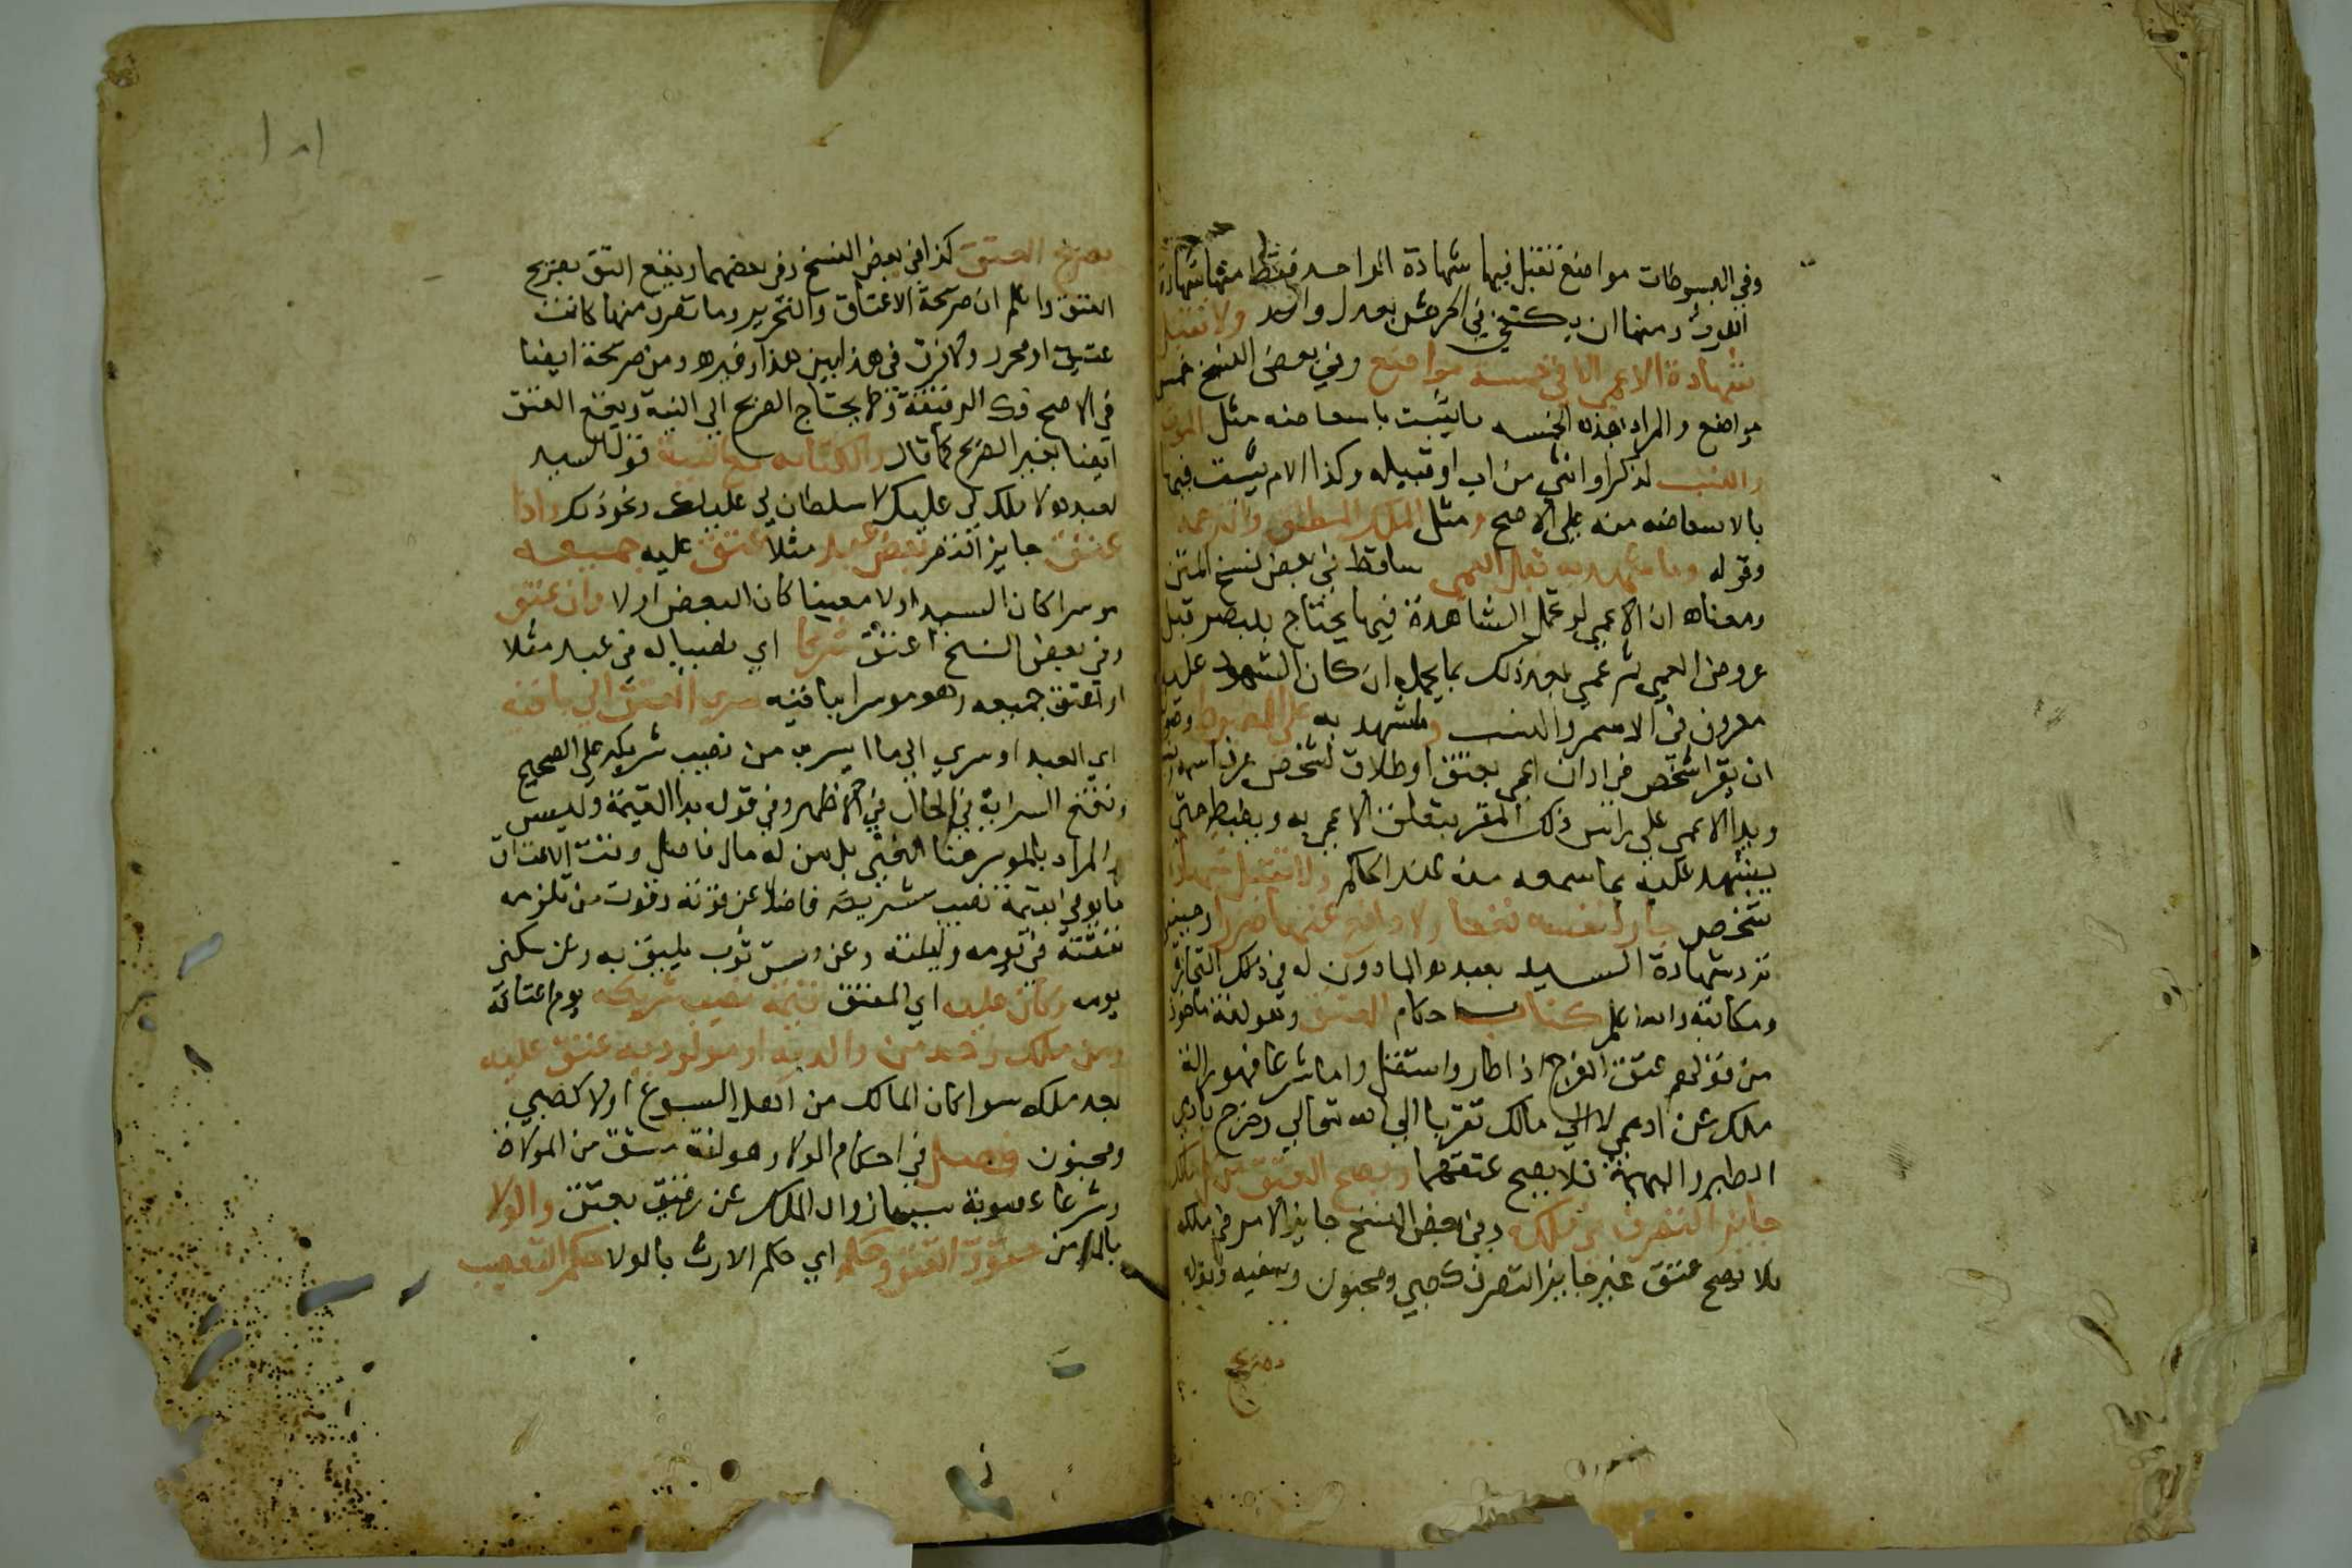 وفي المبسوطات مواضع تقبل فيها شهادة الواحد فقط منها شهادة
اللوث ومنها ان يكتفي في الخرص بعدل واحد ولا تقبل
شهادة الاعمي الا في خمسة مواضع وفي بعض النسخ خمس
مواضع والمراد بهذه الخمسه ما يثبت باستفاضه مثل الموت
والنسب لذكر او انثي من اب او قبيله وكذا الام يثبت فيها
بالاستفاضه منه علي الاصح ومثل الملك المطلق والترجمه
وقوله وما شهد به قبل العمي ساقط في بعض نسخ المتن
ومعناه ان الاعمي لو تحمل الشاهدة فيما يحتاج للبصر قبل
عروض العمي ثم عمي بعد ذلك بما يحمله ان كان المشهود عليه
معروف في الاسم والنسب وما شهد به علي المضبوط وصور
ان يقر شخص في اذان اعمي بعتق او طلاق لشخص عرف اسمه
ويد الاعمي علي راس ذلك المقر بتعلق الاعمي به ويضبط حتي
يشهد عليه بما سمعه منه عند الحاكم ولا تقبل شهادة
شخص جار لنفسه نفعا ولا دافع عنها ضررا وحينيذ
ترد شهادة السيد بعبده الماذون له في ذلك التجارة
ومكاتبه والله اعلم كتاب احكام العتق وهو لغة ماخوذ
من قولهم عتق الفرخ اذا طار واستقل واما شرعا فهو ازالة
ملك عن ادمي لا الي مالك تقربا الي الله تعالي وخرج بادمي
الطير والبهيمة فلا يصح عتقهما ويصح العتق من كل مالك
جايز التصرف في ملكه وفي بعض النسخ جايز الامر في ملكه
فلا يصح عتق غير جايز التصرف كصبي ومجنون وسفيه وقوله
بصريح
١٨١
بصريح العتق كذا في بعض النسخ وفي بعضهما ويقع العتق بصريح
العتق واعلم ان صريحة الاعتاق والتحرير وما تصرف منهما كانت
عتيق او محرر ولا فرق في هذا بين هذا وغيره ومن صريحة ايضا
في الاصح فك الرقبة ولا يحتاج الصريح الي النية ويقع العتق
ايضا بغير الصريح كما قال والكنايه مع النية قول السيد
لعبده لا ملك لي عليك لا سلطان لي عليك ونحو ذلك واذا
عتق جايز التصرف بعض عبد مثلا عتق عليه جميعه
موسرا كان السيد او لا معينا كان البعض او لا وان عتق
وفي بعض النسخ اعتق شركا اي نصيبا له في عبد مثلا
او اعتق جميعه وهو موسر بباقيه سري العتق الي باقيه
اي العبد او سري الي ما ايسر به من نصيب شريكه علي الصحيح
وتقع السراية في الحال في الاظهر وفي قوله بدا القيمة وليس
المراد بالموسر هنا الغني بل من له مال فاضل وقت الاعتاق
ما يوفي بقيمة نصيب شريكه فاضلا عن قوته وقوت من تلزمه
نفقته في يومه وليلته وعن دست ثوب يليق به وعن سكني
يومه وكان عليه اي المعتق قيمة نصيب شريكه يوم اعتاقه
ومن ملك واحد من والديه او مولوديه عتق عليه
بعد ملكه سوا كان المالك من اهل التبرع او لا كصبي
ومجنون فصل في احكام الولا وهو لغة مشتق من الموالاة
وشرعا عصوبة سببها زوال الملك عن رقيق بعتق والولا
بالمد من حقوق العتق وحكمه اي حكم الارث بالولا حكم التعصيب